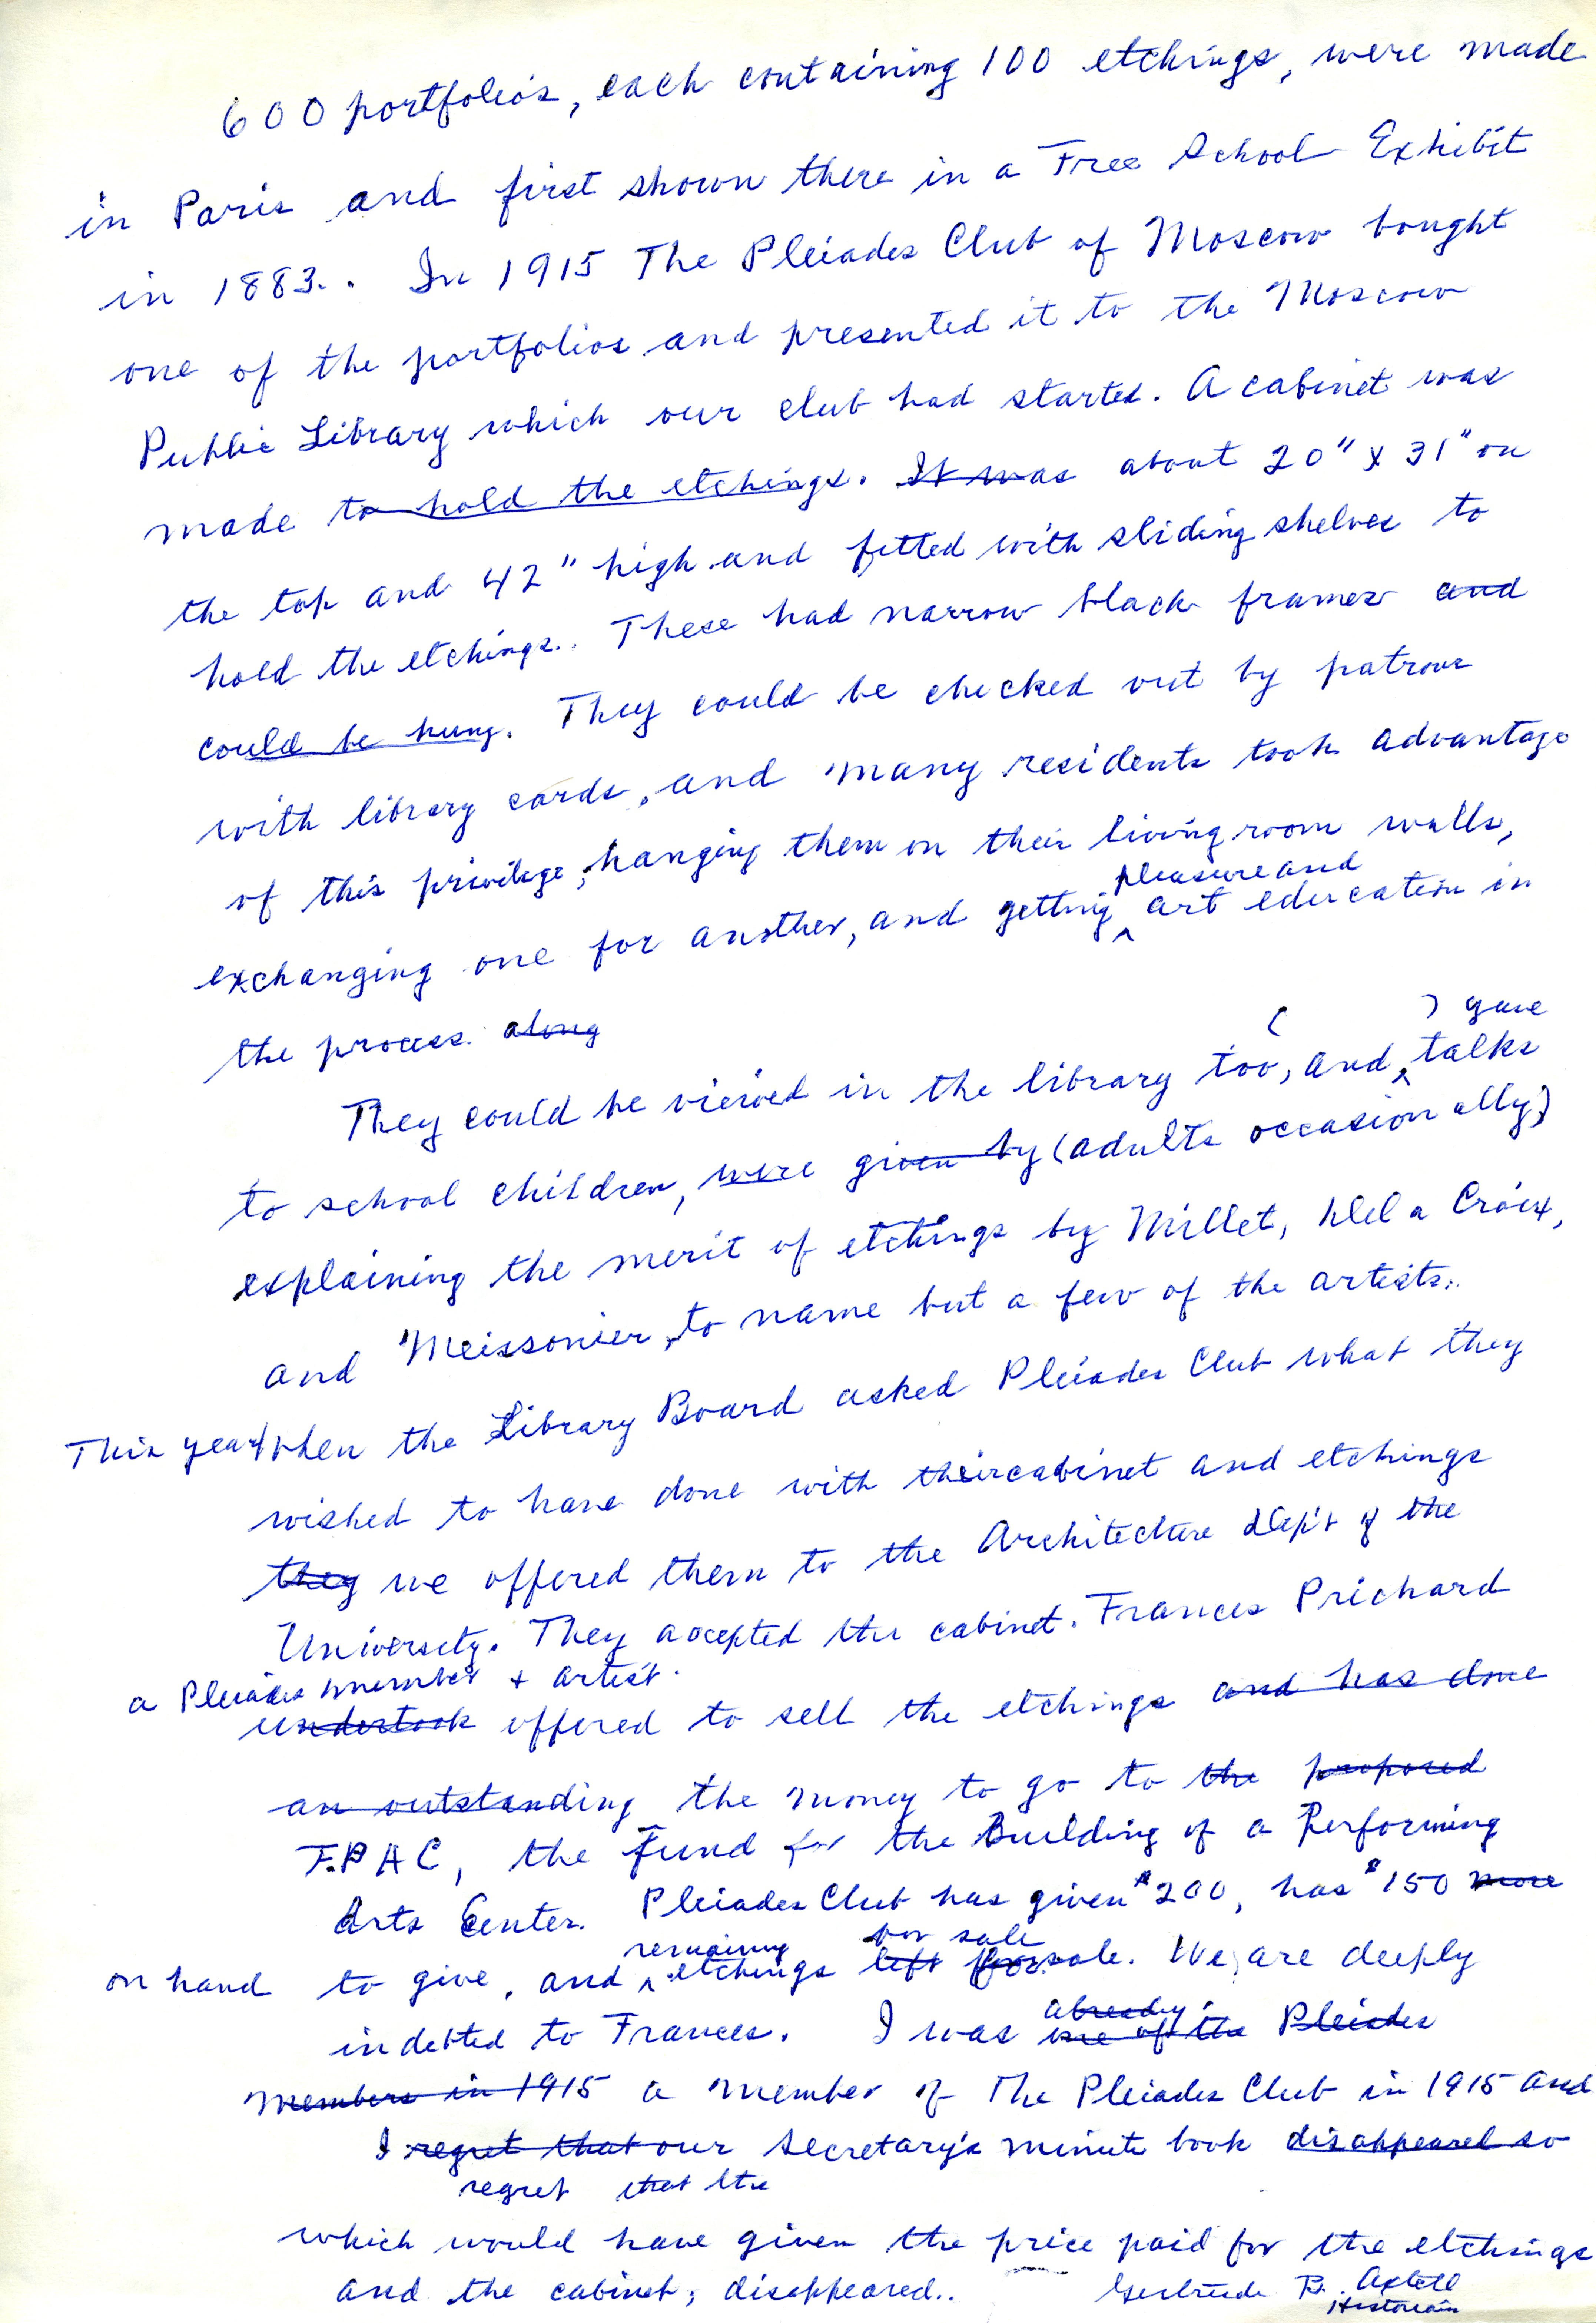 600 portfolios, each containing 100 etchings, were made
in Paris and first shown there in a Free School Exhibit
in 1883.. In 1915 The Pleiades Club of Moscow bought
one of the portfolios and presented it to the Moscow
Public Library which our club had started. A cabinet was
made to hold the etchings. It was about 20" x 31" on
the top and 42" high and fitted with sliding shelves to
hold the etchings.. These had narrow black frames and
could be hung. They could be checked out by patrons
with library cards, and many residents took advantage
of this privilege, hanging them on their livingroom walls,
pleasure and
exchanging one for another, and getting ^ art education in
the process. along
( ) gave
They could be viewed in the library too, and ^ talks
to school children, were given by (adults occasionally)
explaining the merit of etchings by Millet, Dela Croix,
and Meissonier, to name but a few of the artists.
This year when the Library Board asked Pleiades Club what they
wished to have done with their cabinet and etchings
they we offered them to the Architecture Dep't of the
University. They accepted the cabinet. Frances Prichard
a Pleiades member + artist.
undertook offered to sell the etchings and has done
an outstanding the money to go to the proposed
F.P A C, the Fund for the Building of a Performing
Arts Center. Pleiades Club has given $200, has $150 more
remaining for sale
on hand to give, and ^ etchings left for sale. We are deeply
already
indebted to Frances. I was one of the Pleiades
members in 1915 a member of The Pleiades Club in 1915 and
I regret that our Secretary's minute book disappeared so
regret that the
which would have given the price paid for the etchings
and the cabinet, disappeared.. Gertrude B. Axtell
Historian